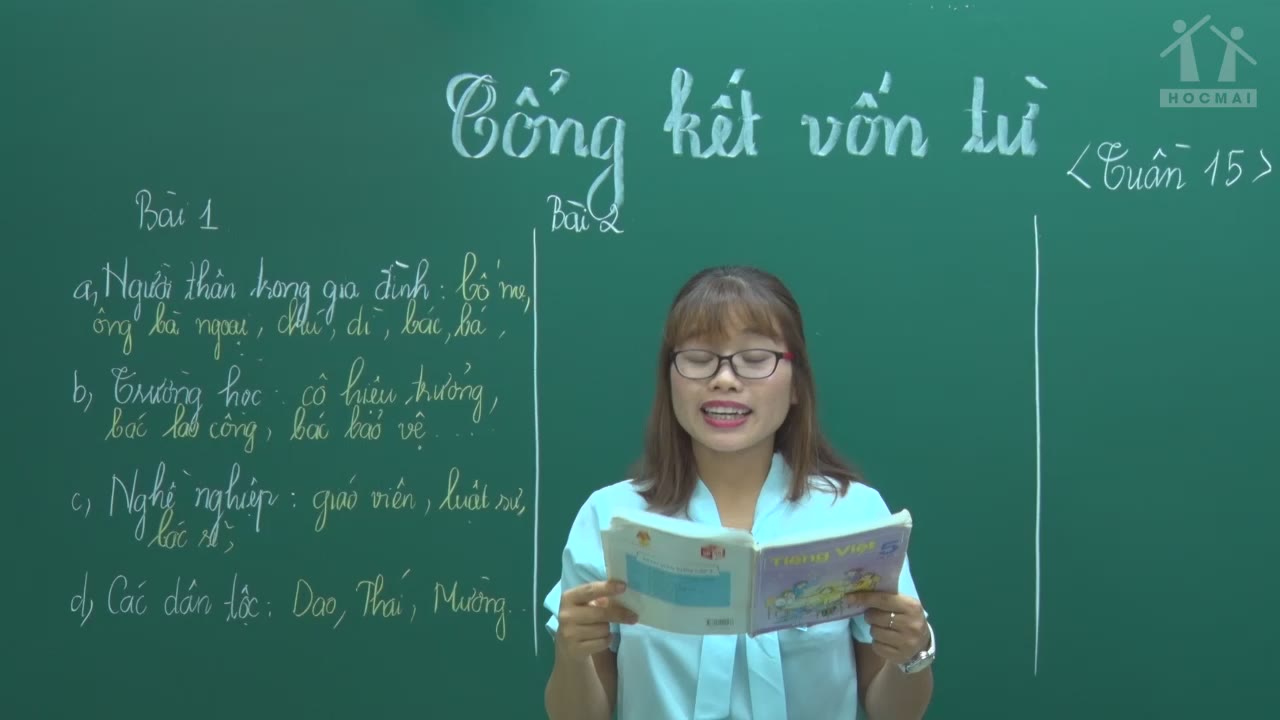 HOCMAI
Tổng kết vốn từ
<Tuần 15>
Bài 1
a, Người thân trong gia đình: bố mẹ,
ông bà ngoại, chú, dì, bác, bá,
b, Trường học: cô hiệu trưởng,
bác lao công, bác bảo vệ....
c, Nghề nghiệp: giáo viên, luật sư,
bác sĩ,
d, Các dân tộc: Dao, Thái, Mường...
Bài 2
Tiếng Việt 5